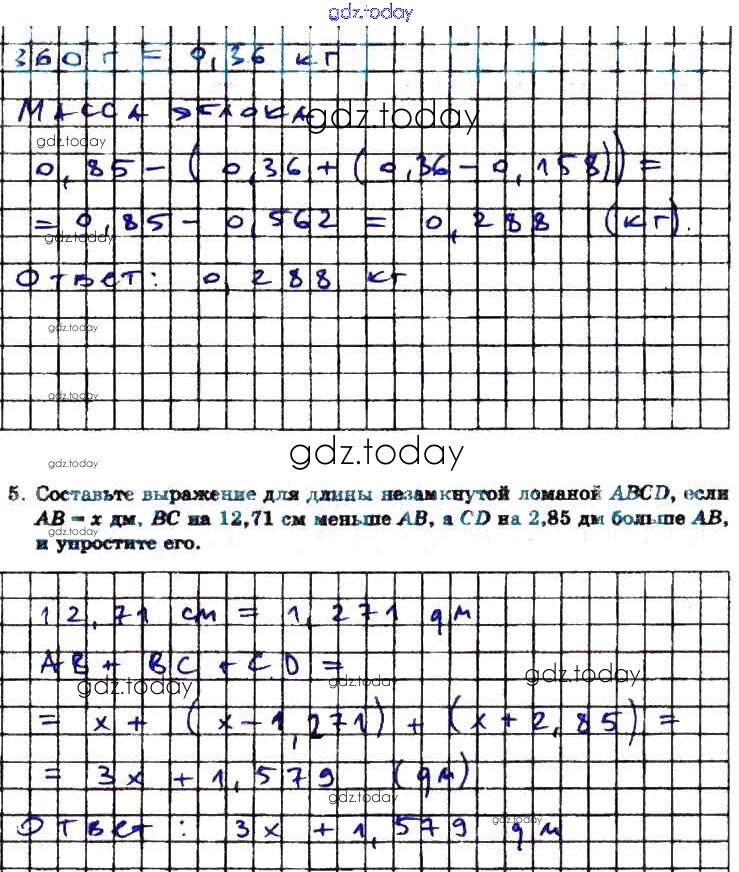 gdz.today
360 г = 0,36 кг
Масса яблока
gdz.today
gdz.today
0,85 - (0,36 + (0,36 - 0,158)) =
= 0,85 - 0,562 = 0,288 (кг).
gdz.today
Ответ: 0,288 кг
gdz.today
gdz.today
gdz.today
gdz.today
5. Составьте выражение для длины незамкнутой ломаной ABCD, если
AB = x дм, BC на 12,71 см меньше AB, а CD на 2,85 дм больше AB,
gdz.today
и упростите его.
12,71 см = 1,271 дм
AB + BC + CD =
gdz.today
gdz.today
gdz.today
= x + (x - 1,271) + (x + 2,85) =
= 3x + 1,579 (дм)
gdz.today
Ответ: 3x + 1,579 дм
gdz.today